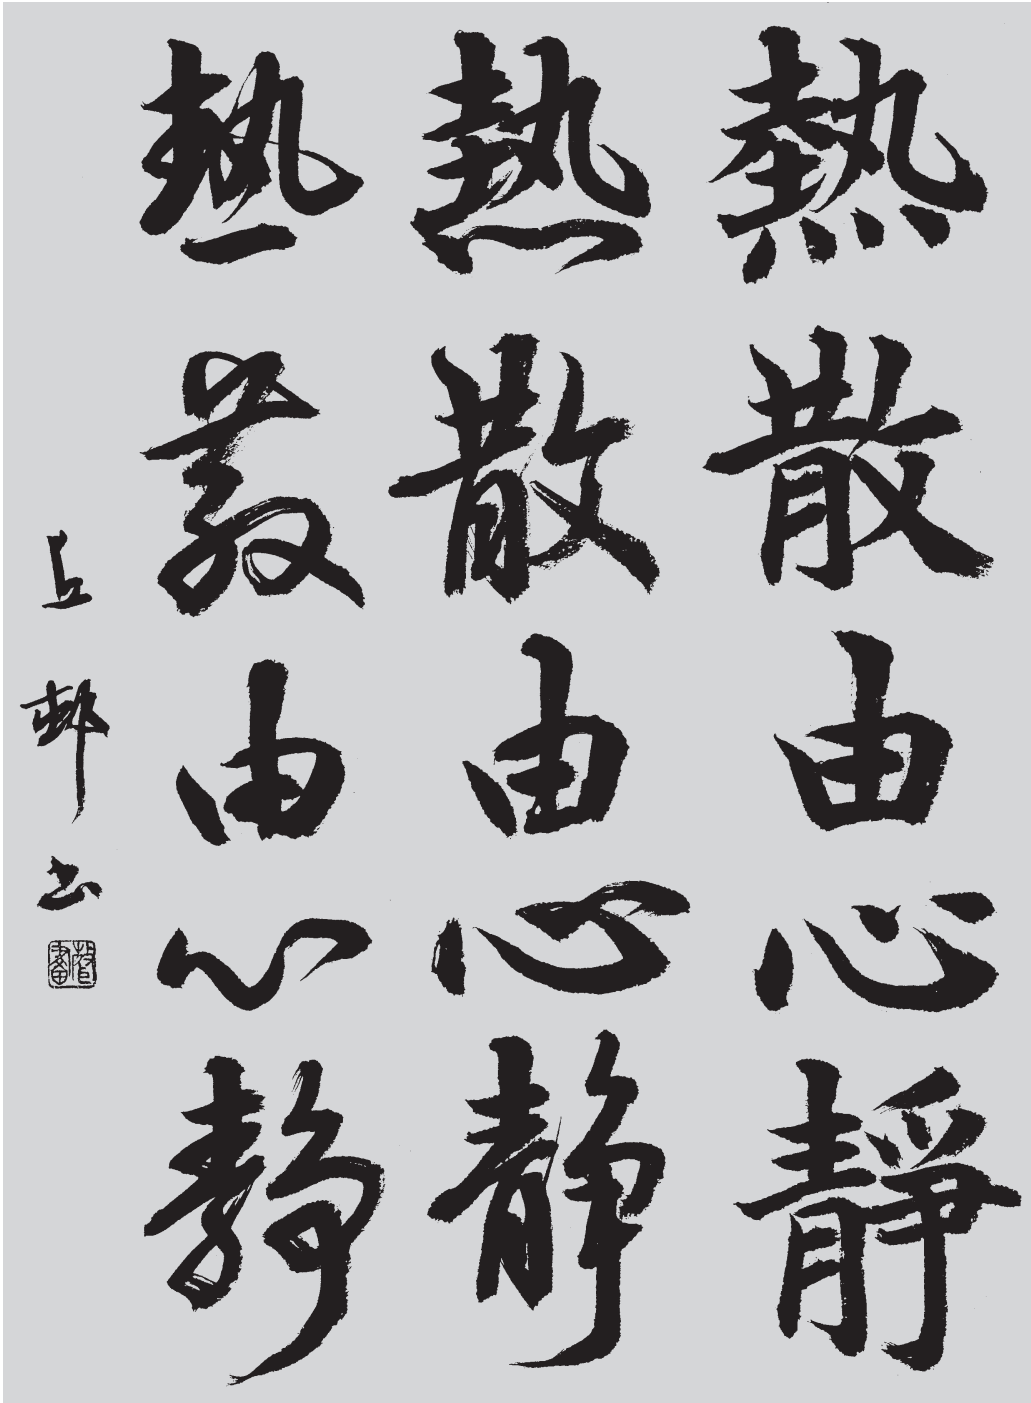 熱散由心靜
熱散由心靜
熱散由心靜
丘邨書